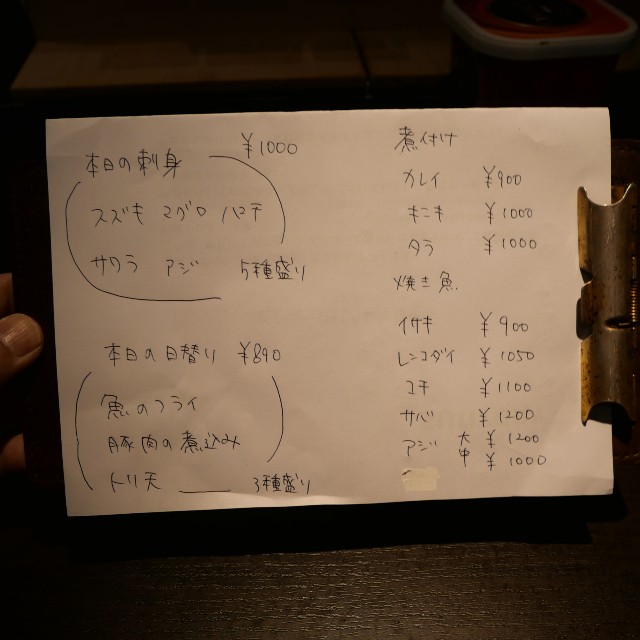 本日の刺身 ¥1000
スズキ マグロ ハマチ
サワラ アジ 5種盛り
本日の日替り ¥890
魚のフライ
豚肉の煮込み
トリ天 3種盛り
煮付け
カレイ ¥900
キニキ ¥1000
タラ ¥1000
焼き魚
イサキ ¥900
レンコダイ ¥1050
コチ ¥1100
サバ ¥1200
アジ 大 ¥1200
中 ¥1000